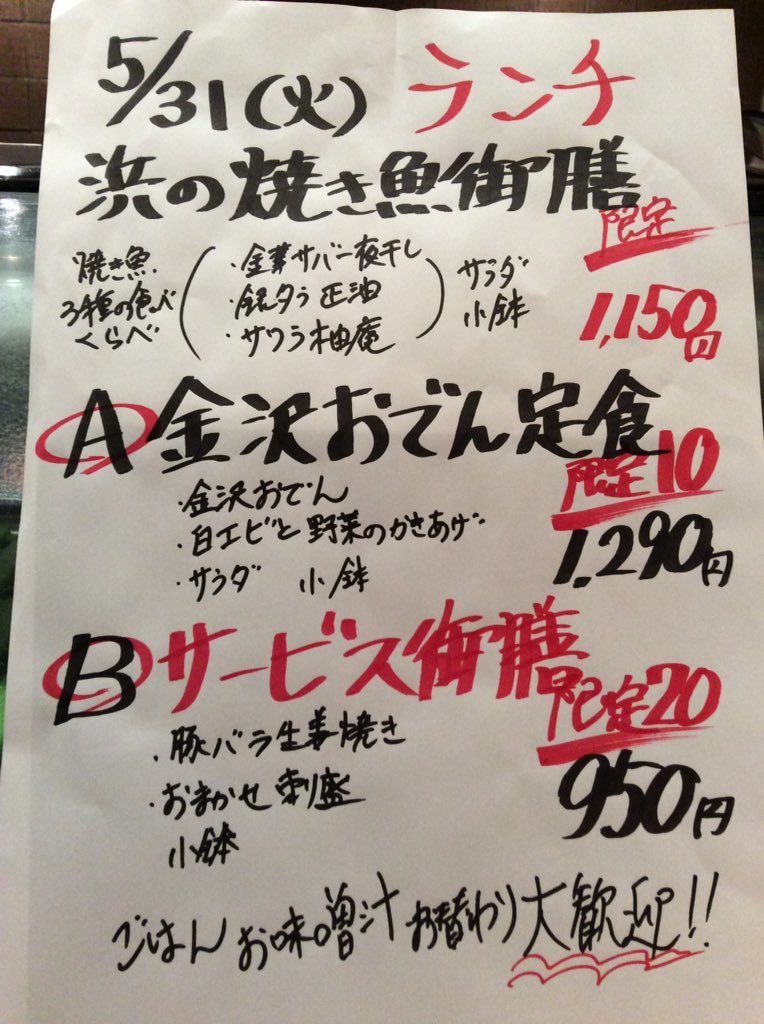 5/31(火) ランチ
浜の焼き魚御膳
限定
焼き魚
3種の食べ
くらべ
・金華サバ一夜干し
・銀タラ正油
・サワラ柚庵
サラダ
小鉢
1,150円
A 金沢おでん定食
限定10
・金沢おでん
・白エビと野菜のかきあげ
・サラダ 小鉢
1,290円
B サービス御膳
限定20
・豚バラ生姜焼き
・おまかせ刺盛
小鉢
950円
ごはん お味噌汁 お替わり大歓迎!!